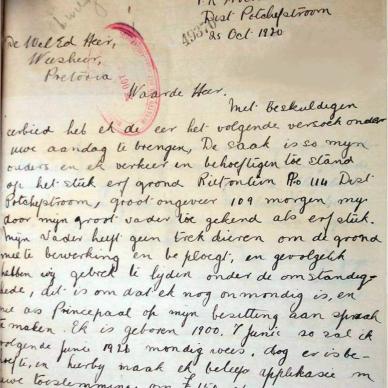 Dist Potchefstroom
25 Oct 1920
49370
De Wel Ed Heer,
Weesheer,
Pretoria
Waarde Heer.
Met Beskuldigen
eerbied heb ek de eer het volgende versoek onder
uwe aandag te brengen, De saak is so myn
ouders en ek verkeer in behoeftigen toe stand
op het stuk erf grond Rietfontein No 114 Dist
Potchefstroom, groot ongeveer 109 morgen my
door myn groot vader toe gekend als erf stuk.
Myn vader heeft geen trek dieren om de grond
mee te bewerking en be ploegt, en gevolgelik
hebben wy gebrek te lyden onder de omstandig-
hede, dit is om dat ek nog onmondig is, en
as Principaal op myn besetting aan spraak
te maken. Ek is geboren 1900. 7 Junie so sal ik
volgende Junie 1921 mondig wees, dog er is be-
en hierby maak ek beleefd applikasie in
uwe toestemming om £150